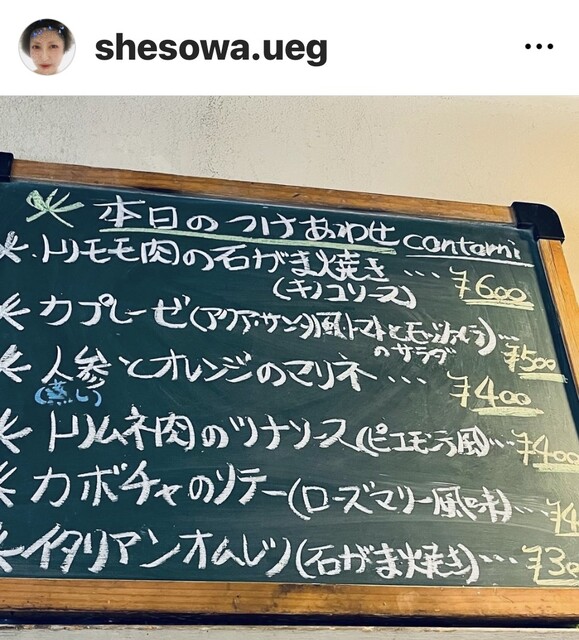 shesowa.ueg
本日のつけあわせ contorni
トリモモ肉の石がま焼き … ¥600
(キノコソース)
カプレーゼ(アクア・サンタ風・トマトとモッツァレラ)… ¥500
のサラダ
人参とオレンジのマリネ … ¥400
(蒸し)
トリムネ肉のツナソース(ピエモンテ風)… ¥400
カボチャのソテー(ローズマリー風味)… ¥4
イタリアンオムレツ(石がま焼き)… ¥30